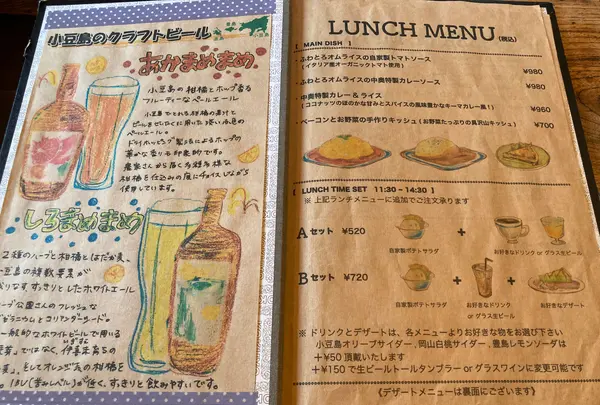 小豆島のクラフトビール
豊島
小豆島
あかまめまめ
小豆島の柑橘とホップ香る
フルーティーなペールエール
小豆島でとれる柑橘の果汁と
ピールをぜいたくに用いた
ペールエール。
ドライホッピング製法によるホップの
華やかな香りも印象的です。
農家さんから届く多種多様な
柑橘を仕込みの度にチョイスしながら
使用しています。
しろまめまめ
2種のハーブと柑橘とはだか麦、
小豆島の
すっきりとしたホワイトエール
ーブ公園さんのフレッシュな
ゼラニウムとコリアンダーシード。
一般的なホワイトビールで用いる
いすず
ではなく、伊喜末育ちの
、そしてオレンジ系の柑橘を
。IBU(苦みレベル)が低く、すっきりと飲みやすいです。
LUNCH MENU (税込)
[ MAIN DISH ]
・ふわとろオムライスの自家製トマトソース
(イタリア産オーガニックトマト使用)
¥980
・ふわとろオムライスの中奥特製カレーソース
¥980
・中奥特製カレー & ライス
(ココナッツのほのかな甘みとスパイスの風味豊かなキーマカレー風!)
¥980
・ベーコンとお野菜の手作りキッシュ(お野菜たっぷりの具沢山キッシュ)
¥700
[ LUNCH TIME SET 11:30~14:30 ]
※ 上記ランチメニューに追加でご注文承ります
Aセット ¥520
自家製ポテトサラダ
お好きなドリンク or グラス生ビール
Bセット ¥720
自家製ポテトサラダ
お好きなドリンク
or グラス生ビール
お好きなデザート
※ ドリンクとデザートは、各メニューよりお好きな物をお選び下さい
小豆島オリーブサイダー、岡山白桃サイダー、豊島レモンソーダは
+¥50 頂戴いたします
+¥150 で生ビールトールタンブラー or グラスワインに変更可能です
《デザートメニューは裏面にございます》